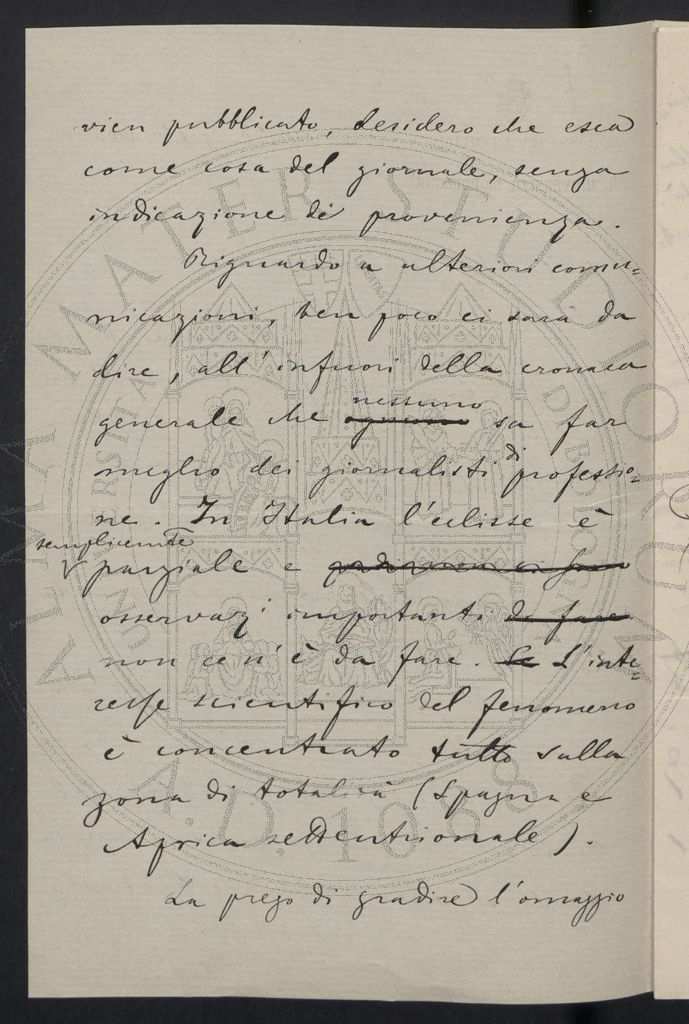 vien pubblicato, desidero che esca
come cosa del giornale, senza
indicazione di provenienza.
Riguardo a ulteriori comu=
nicazioni, ben poco ci sarà da
dire, all'infuori della cronaca
nessuno
generale che sa far
meglio dei giornalisti di professio=
ne. In Italia l'eclisse è
semplicemte
parziale e
osservazi importanti da fare
non ce n'è da fare. Se L'inte=
resse scientifico del fenomeno
è concentrato tutto sulla
zona di totalità (Spagna e
Africa settentrionale).
La prego di gradire l'omaggio
ALMA MATER STUDIORUM
A.D. 1088